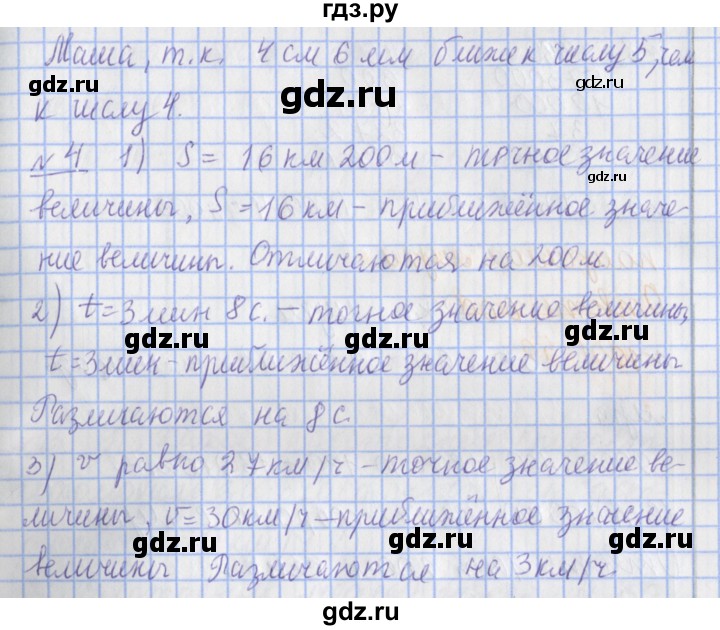 гдз.ру
Маша, т.к. 4 см 6 мм ближе к числу 5, чем
к числу 4.
№4 1) S = 16 км 200 м – точное значение
величины, S = 16 км – приближённое значе-
ние величины. Отличаются на 200 м.
2) t = 3 мин 8 с. – точное значение величины,
t = 3 мин – приближённое значение величины
Различаются на 8 с.
3) v равно 27 км/ч – точное значение ве-
личины, v = 30 км/ч – приближённое значение
величины Различаются на 3 км/ч
gdz.ru
gdz.ru
gdz.ru
gdz.ru
gdz.ru
gdz.ru
gdz.ru
gdz.ru
gdz.ru
gdz.ru
gdz.ru
gdz.ru
gdz.ru